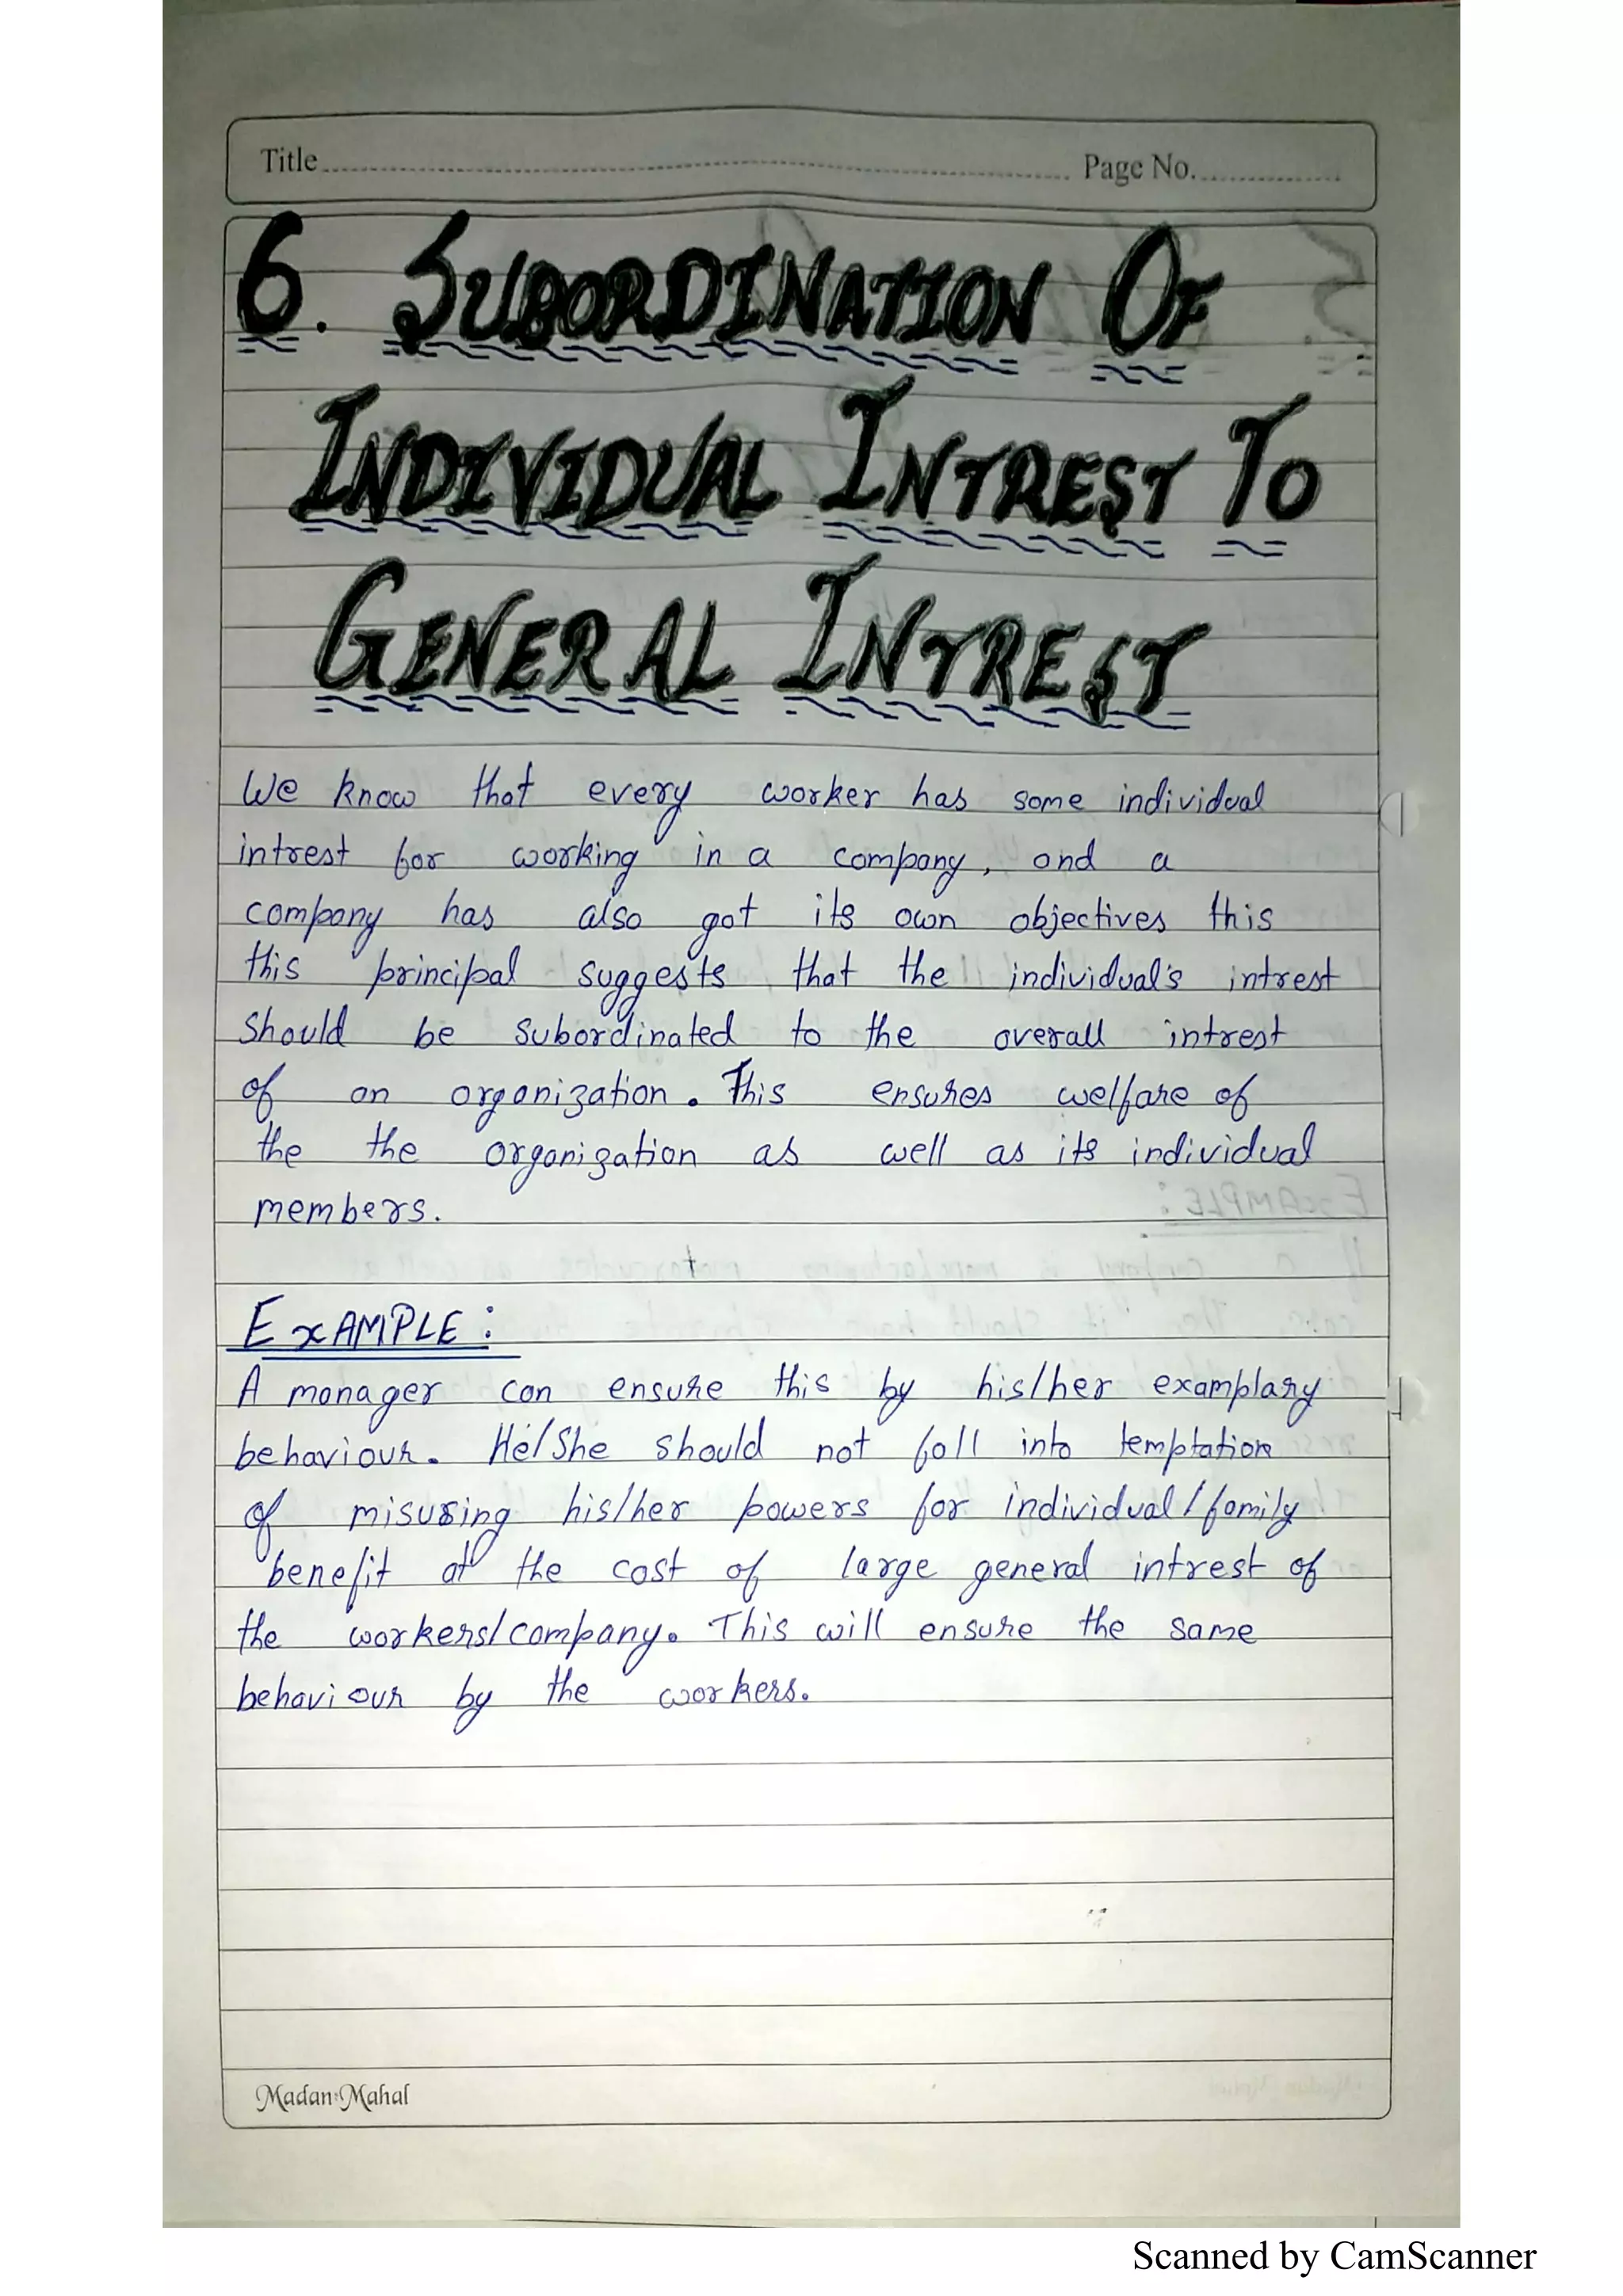 Title Page No.
6. SUBORDINATION OF
INDIVIDUAL INTREST TO
GENERAL INTREST
We know that every worker has some individual
intrest for working in a company, and a
company has also got its own objectives this
this principal suggests that the individual's intrest
should be subordinated to the overall intrest
of an organization. This ensures welfare of
the the organization as well as its individual
members.
EXAMPLE:
A manager can ensure this by his/her examplary
behaviour. He/She should not fall into temptation
of misusing his/her powers for individual/family
benefit at the cost of large general intrest of
the workers/company. This will ensure the same
behaviour by the workers.
Madan Mahal
Scanned by CamScanner